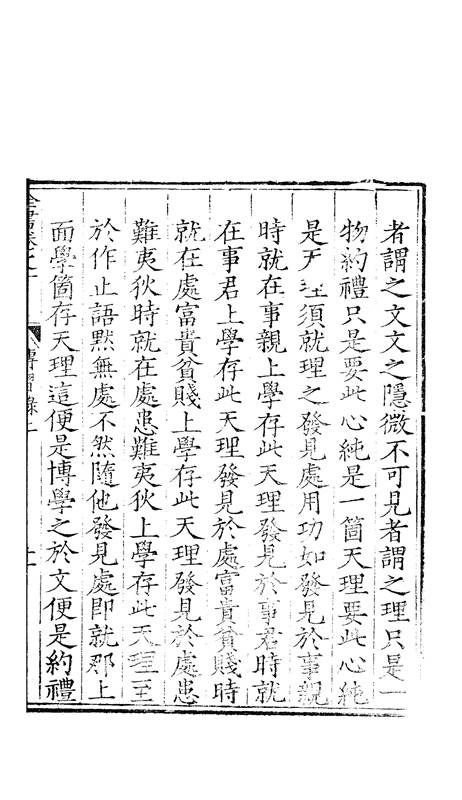 者謂之文文之隱微不可見者謂之理只是一
物約禮只是要此心純是一箇天理要此心純
是天理須就理之發見處用功如發見於事親
時就在事親上學存此天理發見於事君時就
在事君上學存此天理發見於處富貴貧賤時
就在處富貴貧賤上學存此天理發見於處患
難夷狄時就在處患難夷狄上學存此天理至
於作止語默無處不然隨他發見處即就那上
面學箇存天理這便是博學之於文便是約禮